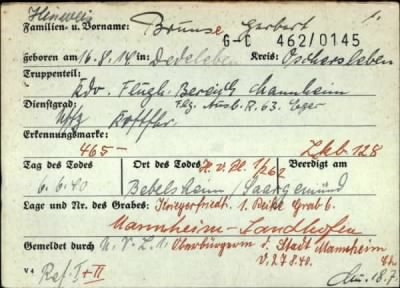 Hinweis 1.
Familien- u. Vorname: Brunse Herbert
G-C 462/0145
geboren am 16.8.18 in Dedeleben Kreis: Oschersleben
Truppenteil: Kdo. Flugh. Bereich Mannheim
Dienstgrad: Uffz Flg. Ausb. R. 63.
Erkennungsmarke:
465- Zkb 128
Tag des Todes Ort des Todes Beerdigt am
6.6.40 Bebelsheim/Saargemünd
Lage und Nr. des Grabes: Kriegerfriedh. 1. Reihe Grab 6.
Mannheim-Sandhofen
Gemeldet durch Oberbürgerm d. Stadt Mannheim
v. 27.8.40.
V 4 Ref I+II 18.7